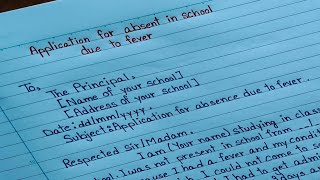 Application for absent in school
due to fever
To,
The Principal,
[Name of your school]
[Address of your school]
Date: dd/mm/yyyy.
Subject: Application for absence due to fever.
Respected Sir/Madam,
I am (Your name) studying in class
school. I was not present in school from
because I had a fever and my condi
I could not come to s
I had to get adm
days a